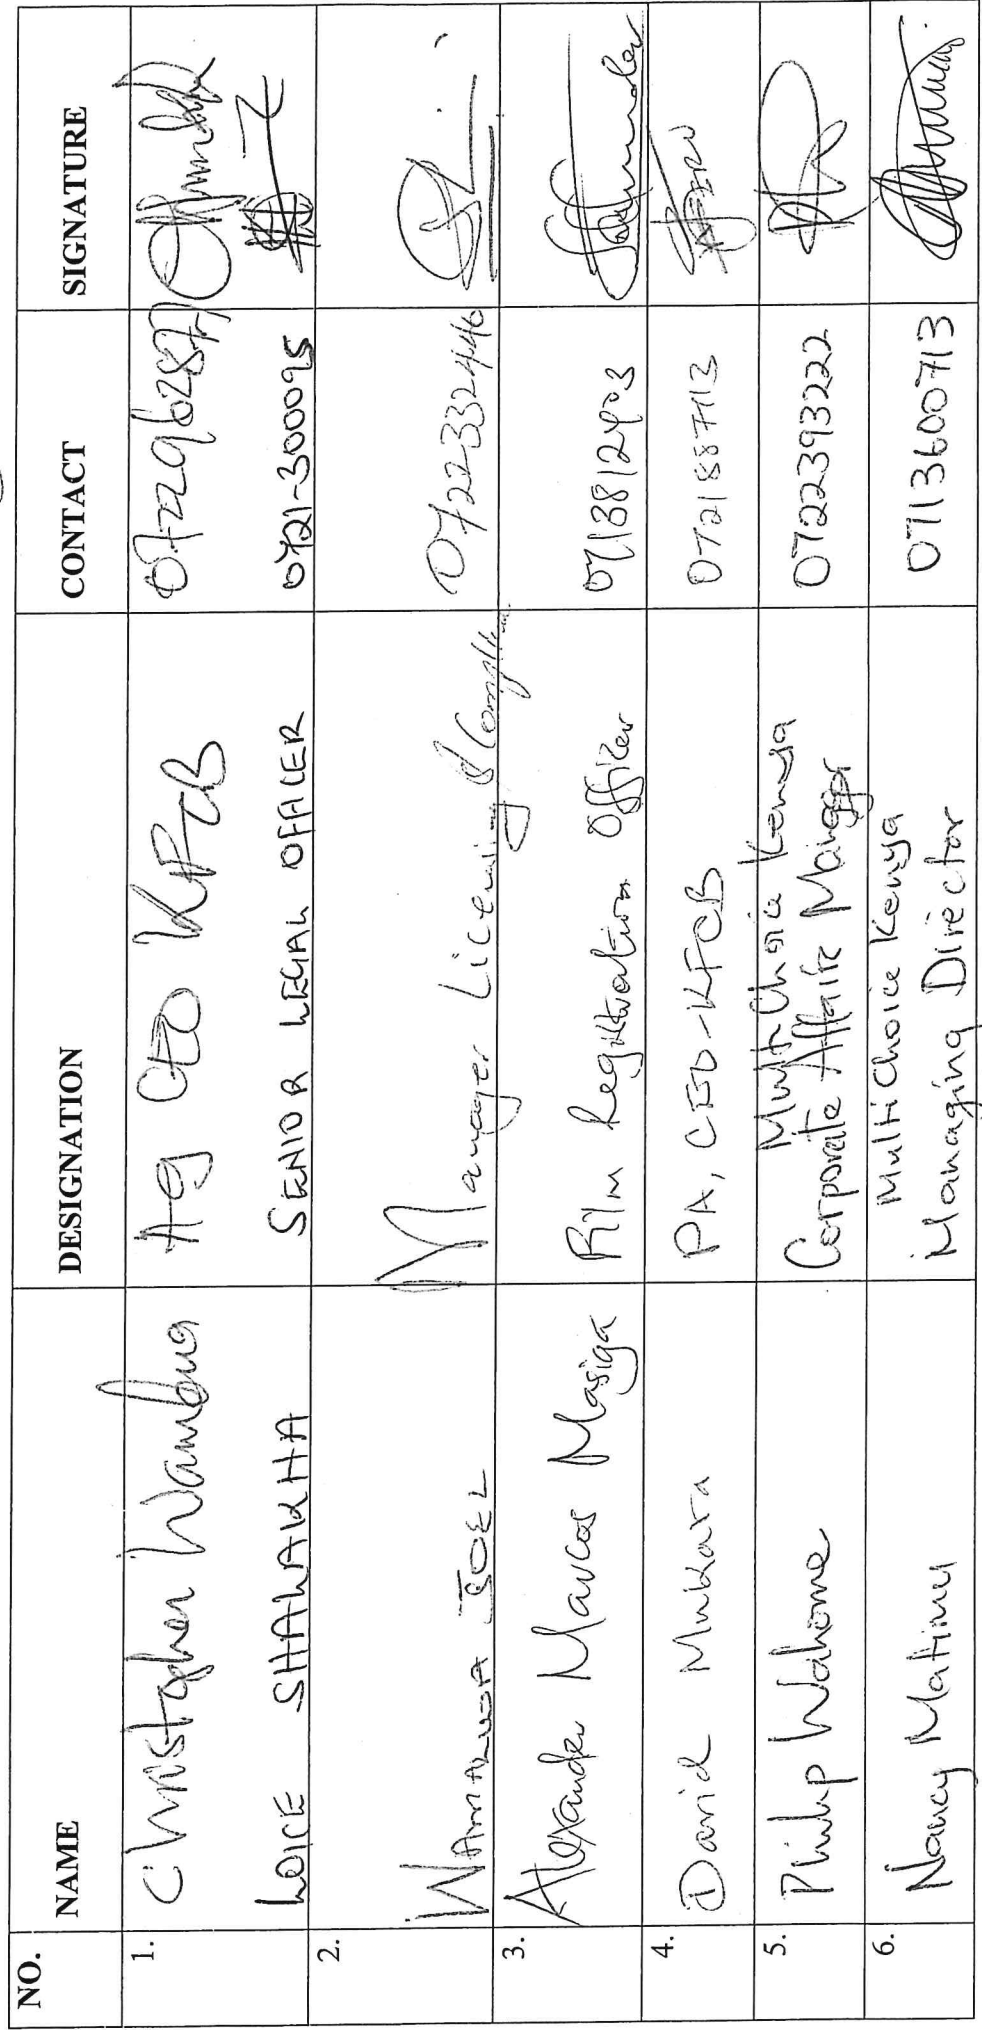 NO. NAME DESIGNATION CONTACT SIGNATURE
1. Christopher Wambua Ag CEO KFCB 0722962877
LOICE SHALAKHA SENIOR LEGAL OFFICER 0721-300095
2. WAMALWA JOEL Manager Licensing & 0722332440
3. Alexander Marcos Masiga Film Registration Officer 0713812403
4. David Mukara PA, CEO-KFCB 0721887113
5. Philip Wahome MultiChoice Kenya 0722393222
Corporate Affairs Manager
6. Nancy Matimu MultiChoice Kenya 0713600713
Managing Director